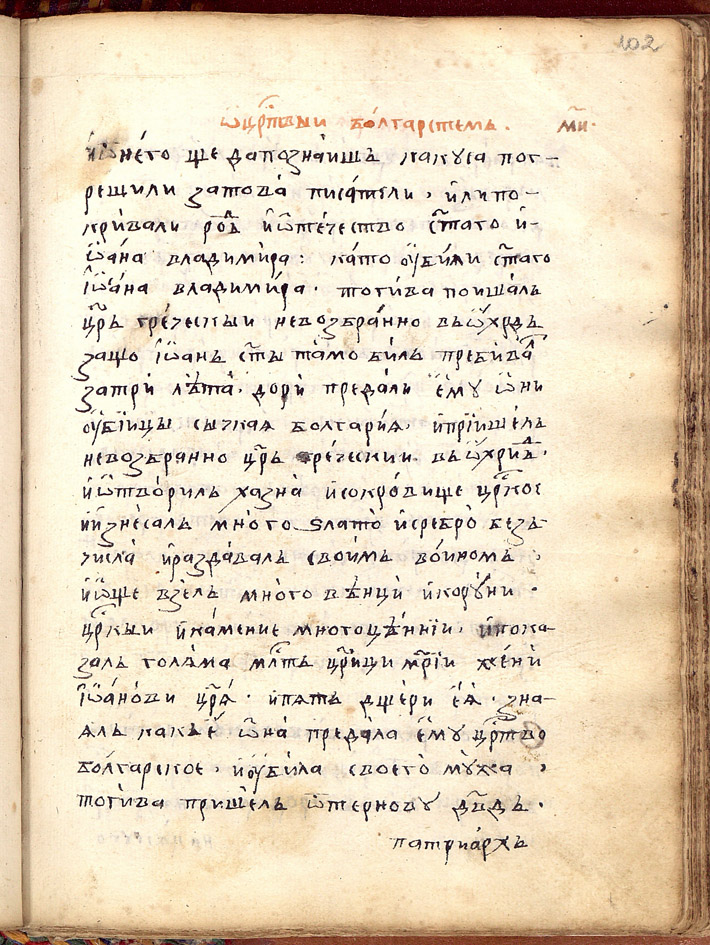 102
ѿ црⷭ҇твыи болгарстемъ. м҃и.
и ѿ него ще да познаишъ какуса пог-
решили затова писатели, или по-
кривали роⷣ и ѿтечество с҃таго и-
ѡана владимира: като ѹбили с҃таго
їѡана владимира. тогива поишалъ
цр҃ь греческыи невозбранно въ ѡхрⷣъ
защо їѡанъ с҃ты тамо билъ пребивалъ
за три лѣта. дори предали ему ѡни
ѹбіицы сычкая болгария, и пріишелъ
невозбранно цр҃ь греческии въ ѡхриⷣ.
и ѿтворилъ хазна и сокровище црⷭ҇кое
и изнесалъ много ѕлато и сребро безъ
числа и раздавалъ своимъ воиномъ.
и ѡще взелъ много вѣнци и коруни.
црⷭ҇кыи и камение многоцѣннїи, и пока-
залъ голѧма млⷭ҇тъ цр҃ици мр҃їи жени
їѡанови цр҃ѧ. и пѧтъ дщери еѧ. зна-
ѧлъ какъ е ѡна предала ему црⷭ҇тво
болгарское, и ѹбила своего мужа,
тогива пришелъ ѿ терновѹ дв҃дъ.
патриархъ